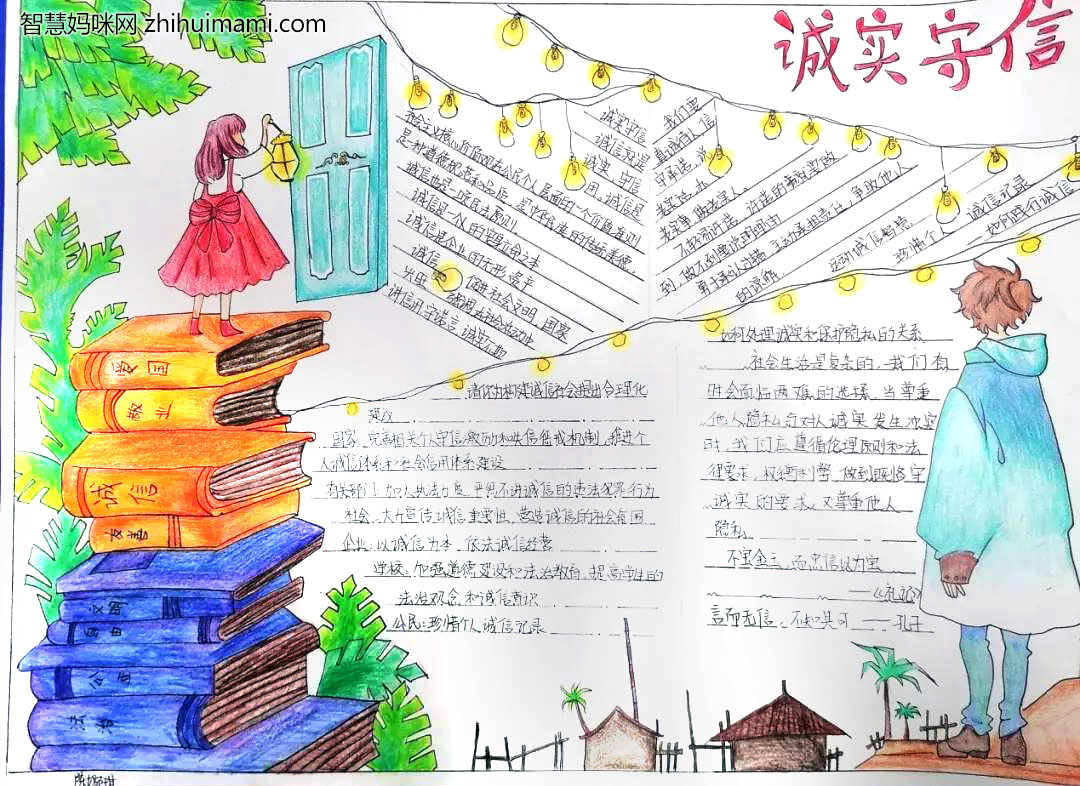 智慧妈咪网 zhihuimami.com
诚实守信
社会主义核心价值观在公民个人层面的一个价值准则
是一种道德规范和品质，是中华民族的传统美德，
诚信也是一项民法原则
诚信是一个人的安身立命之本
诚信是企业的无形资产
诚信 促进社会文明，国家
诚实守信 我们要
诚信 做诚信人
守承诺 说
老实话 办
老实事 做老实人。
不轻易许诺，许诺的事就要做
到，做不到要说明理由
勇于承认过错，主动承担责任，争取他人
的谅解
运动诚信智慧
珍惜个人
诚信记录
——如何践行诚信
请你为构建诚信社会提出合理化
建议
国家：完善相关个人守信激励和失信惩戒机制，推进个
人诚信体系和社会信用体系建设
有关部门：加大执法力度，严惩不讲诚信的违法犯罪行为
社会：大力宣传诚信重要性，营造诚信的社会氛围
企业：以诚信为本，依法诚信经营
学校：加强道德建设和法治教育，提高学生的
法治观念和诚信意识
公民：珍惜个人诚信记录
如何处理诚实和保护隐私的关系
社会生活是复杂的，我们有
时会面临两难的选择，当尊重
他人隐私与对人诚实发生冲突
时，我们应遵循伦理原则和法
律要求，权衡利弊，做到既恪守
诚实的要求，又尊重他人
隐私
不宝金玉，而忠信以为宝
——《礼记》
言而无信，不知其可 ——孔子
爱国
敬业
诚信
友善
文明
自由
公正
法治